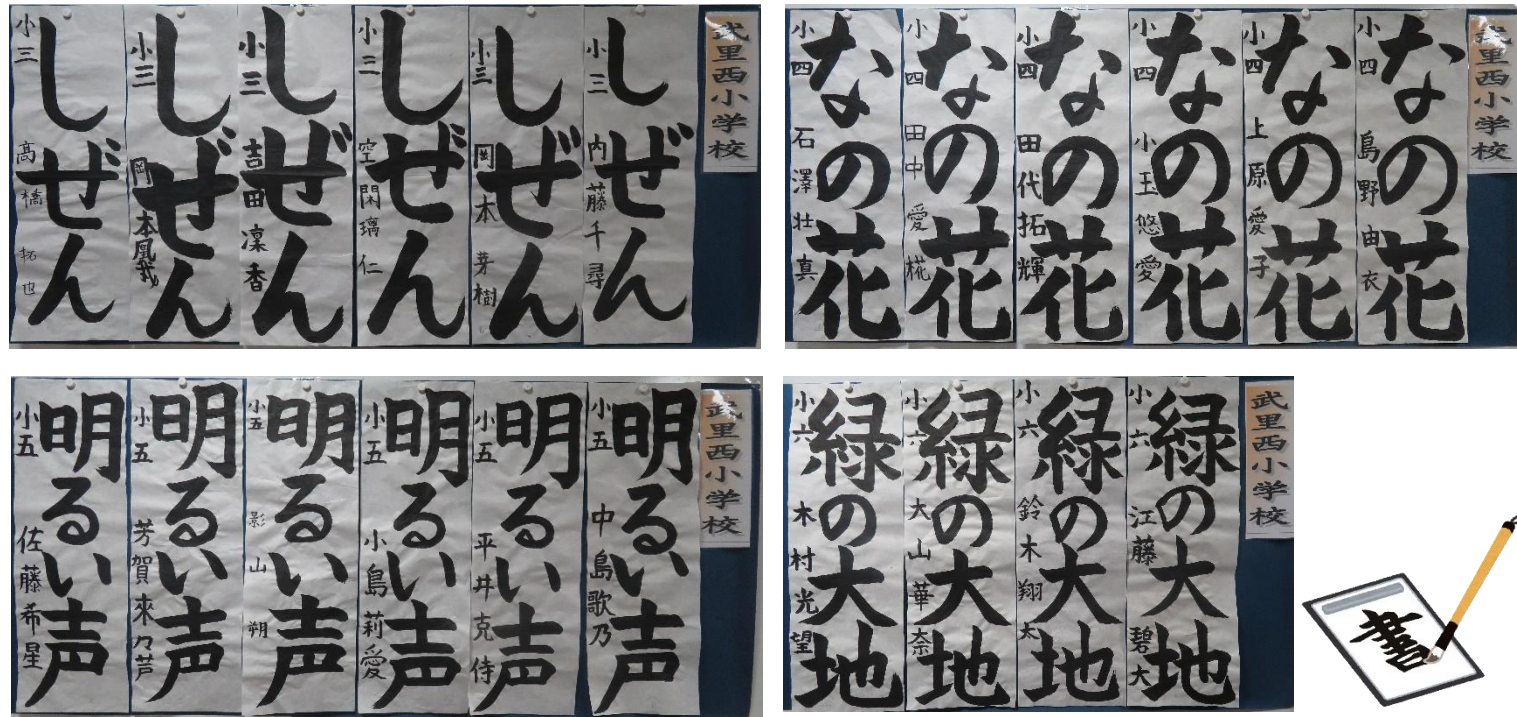 武里西小学校
しぜん
小三 内藤千尋
しぜん
小三 岡本芽樹
しぜん
小三 空閑璃仁
しぜん
小三 吉田凜香
しぜん
小三 岡本凰我
しぜん
小三 高橋拓也
武里西小学校
なの花
小四 島野由衣
なの花
小四 上原愛子
なの花
小四 小玉悠愛
なの花
小四 田代拓輝
なの花
小四 田中愛椛
なの花
小四 石澤壮真
武里西小学校
明るい声
小五 中島歌乃
明るい声
小五 平井克侍
明るい声
小五 小島莉愛
明るい声
小五 影山朔
明るい声
小五 芳賀來々芦
明るい声
小五 佐藤希星
武里西小学校
緑の大地
小六 江藤碧大
緑の大地
小六 鈴木翔太
緑の大地
小六 大山華奈
緑の大地
小六 木村光望
書